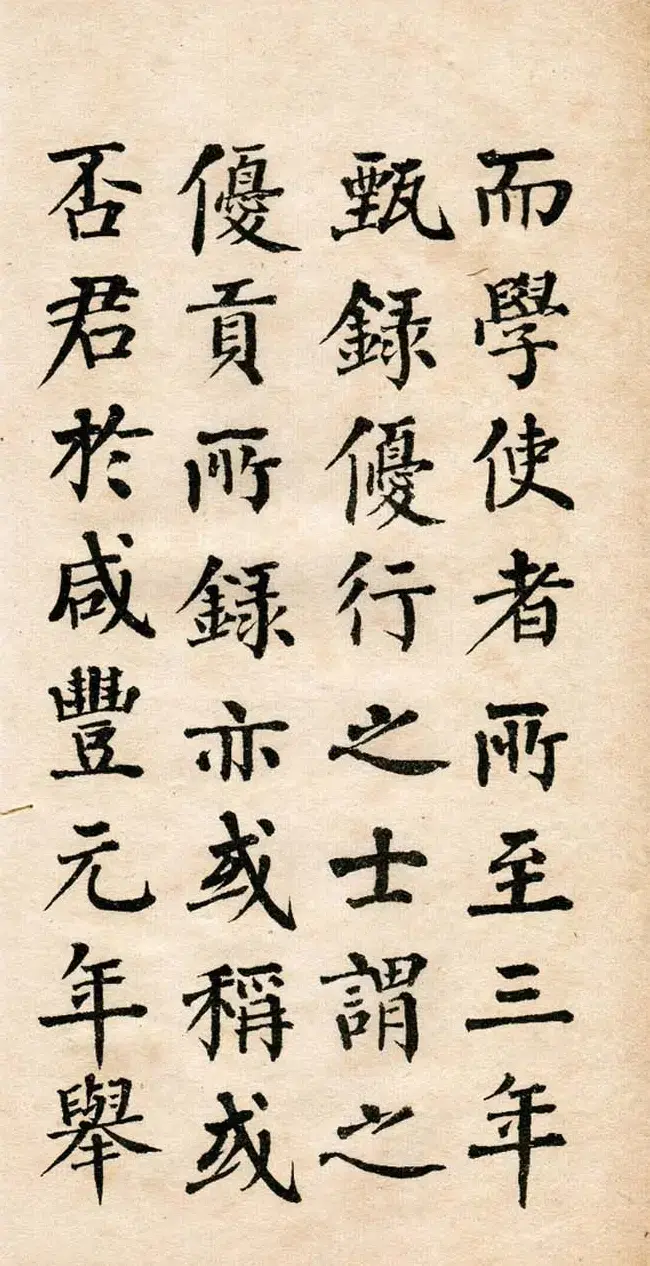 而學使者所至三年
甄録優行之士謂之
優貢所録亦或稱或
否君於咸豐元年舉